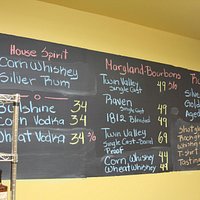 House Spirit
Corn Whiskey
Silver Rum
Sunshine 34
Corn Vodka 34
Wheat Vodka 34
Maryland Bourbons
Twin Valley 49
Single Cask
Raven 49
Single Cask
1812 Blended 49
Twin Valley 69
Single Cask-Barrel
Proof
Corn Whiskey 44
Wheat Whiskey 44
Silve
Gold
Aged
Shotgla
T-shirt
Tasting